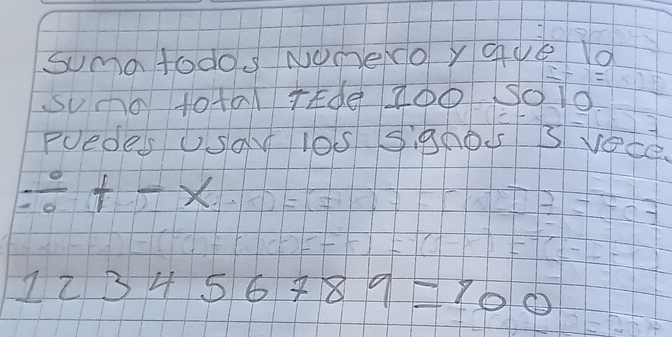 suma todos Nomero y que la
suma total tEde 100 solo
puedes usar los signos 3 vece
÷ + - x
1 2 3 4 5 6 7 8 9 = 100